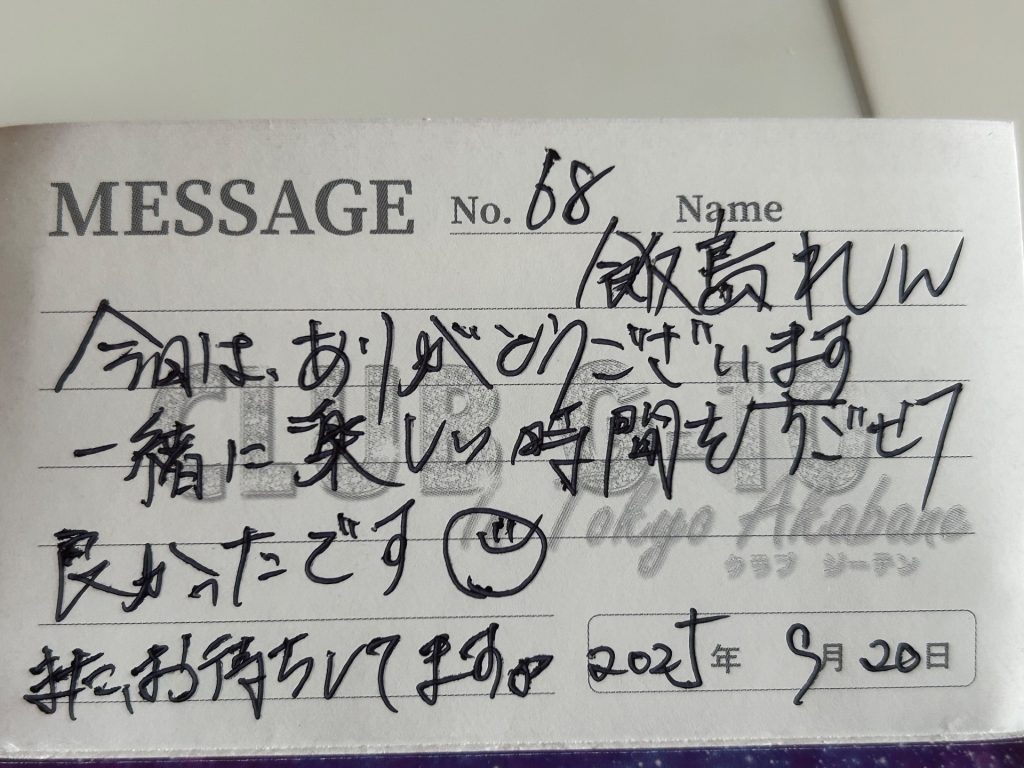 MESSAGE No. 68 Name
飯島れん
今日は、ありがとうございます
一緒に楽しい時間をすごせて
良かったです
また、お待ちしてます。
2025年 9月20日
CLUB G-10
Tokyo Akabane
クラブ ジーテン